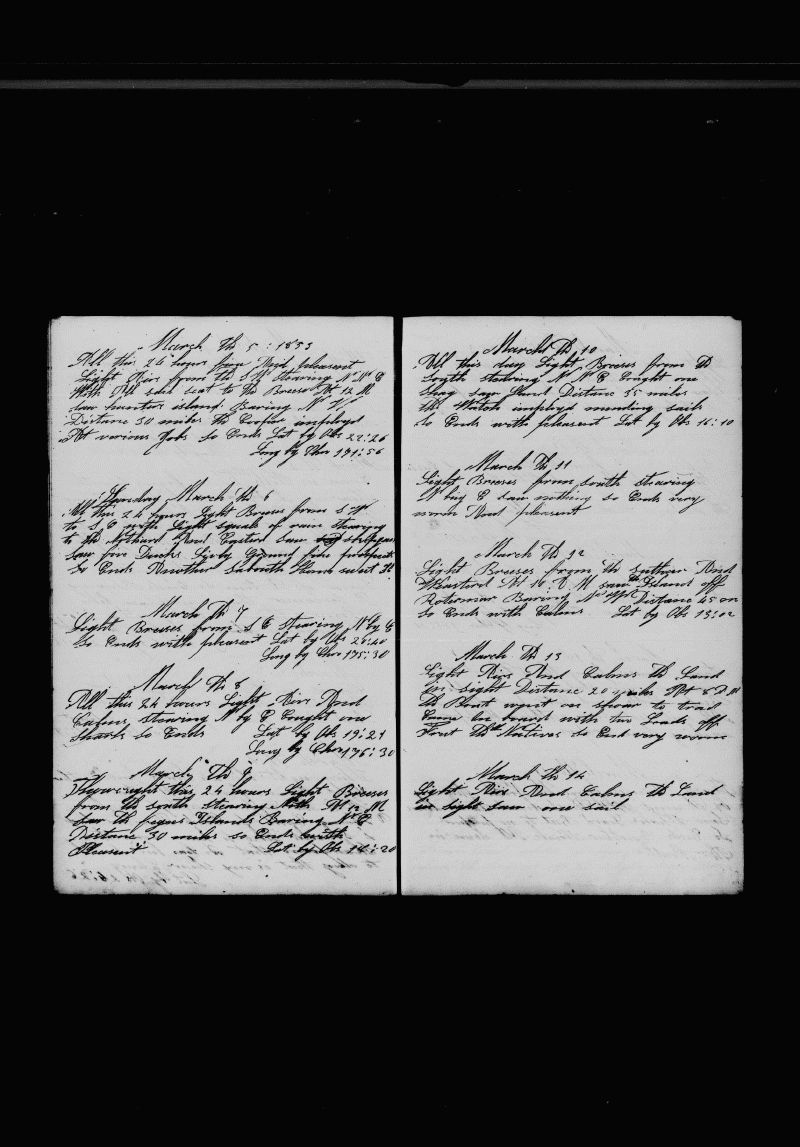 March th 5 : 1853
All this 24 hours fine And pleasent
Light Airs from the S W Stearing N N E
With All sail seat to the Breese At 12 M
saw hunters island Baring N W
Distance 30 miles the Cooper imployd
At various Jobs so Ends Lat by Obs 22:26
Long by Chro 171:56
Sunday March th 6
All this 24 hours Light Breses from S W
to S E with Light squals of rain Stearing
to the Nothard And Eastard saw
saw five Ducks
So Ends Another Sabouth
March th 7
Light Breeses from S E Stearing N by E
So Ends with pleasent Lat by Obs 20:40
Long by Chro 175:30
March th 8
All this 24 hours Light Airs And
Calms Stearing N by E Cought one
Shark so Ends Lat by Obs 19:21
Long by Chro 176:30
March th 9
throught this 24 hours Light Breeses
from the south Stearing North At 12 M
saw th fegees Islands Baring N E
Distance 30 miles so Ends with
Pleasent Lat by Obs 18:20
March Th 10
All this day Light Breeses from th
South Stearing N N E Cought one
Saw Land Distance 35 miles
the Watch imployd mending sails
So Ends with pleasent Lat by Obs 16:10
March Th 11
Light Breeses from south stearing
N by E saw nothing so Ends very
worm And pleasent
March Th 12
Light Breeses from the suthar And
Eastard At 10 A M saw the Island off
Rotermar Baring N W Distance 45 m
So Ends with Calms Lat by Obs 13:02
March Th 13
Light Airs And Calms th Land
in sight Distance 20 miles At 6 P M
th Boat went on shour to traid
Came on board with two Loads off
Frut th Natives so End very worm
March th 14
Light Airs And Calms th Land
in sight saw one sail